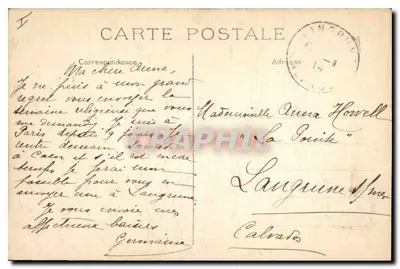 CARTE POSTALE
Correspondance
Adresse
Ma chère Anna,
Je ne puis à mon grand
regret vous envoyer la
semaine religieuse que vous
me demandez. Je suis à
Paris depuis 4 jours. Je
rentre demain
à Caen et s'il est encore
temps je ferai mon
possible pour vous en
envoyer une à Langrune.
Je vous envoie mes
affectueux baisers
Germaine
Mademoiselle Anna Howell
"La Pointe"
Langrune s/mer
Calvados